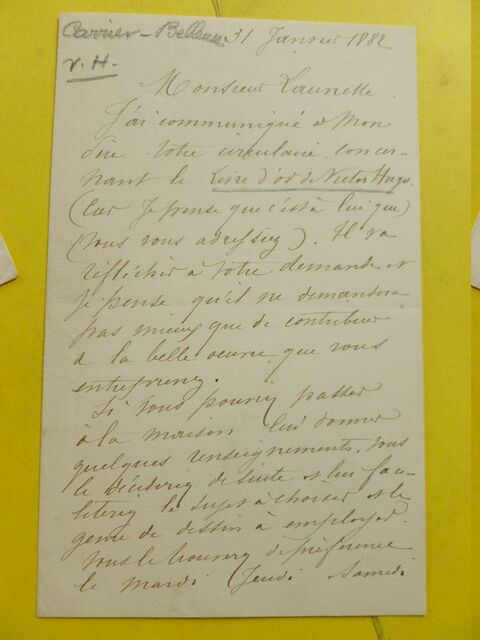 Carrier-Belleuse 31 Janvier 1882
V. H.
Monsieur Launette.
J'ai communiqué à Mon
père votre circulaire concer-
nant le Livre d'or de Victor Hugo.
(Car Je pense que c'est à lui que)
(vous vous adressiez). Il va
réfléchir à votre demande et
je pense qu'il ne demandera
pas mieux que de contribuer
à la belle oeuvre que vous
entreprenez.
Si vous pouviez passer
à la maison lui donner
quelques renseignements, vous
le décideriez de suite et lui faci-
literiez le sujet à choisir et le
genre de dessin à employer.
Vous le trouverez de préférence
le mardi Jeudi Samedi